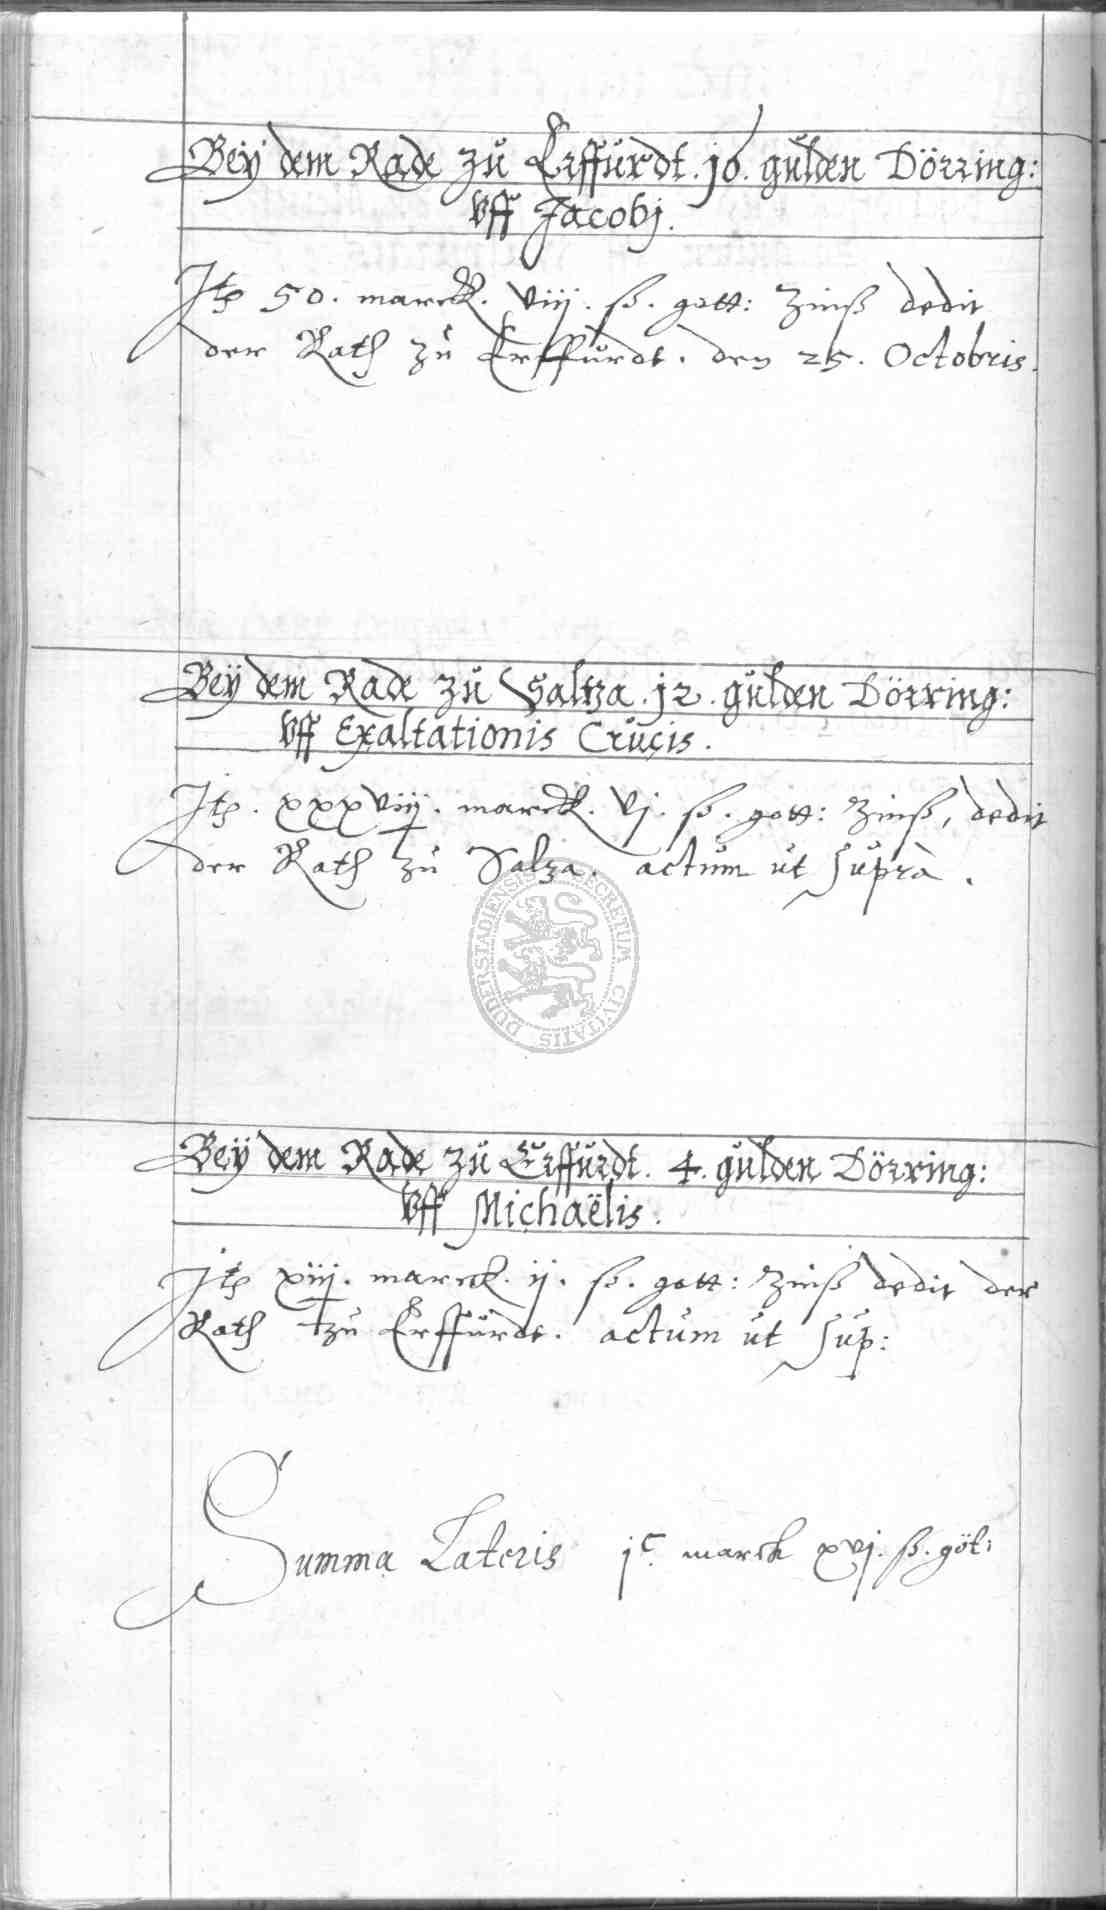 Beÿ dem Rade zu Erffurdt. 16. gulden Dörring:
vff Jacobj.
Jtem 50. marck. viij. ß. gott: Zinß dedit
der Rath zu Erffurdt. den 25. Octobris.
Beÿ dem Rade zu Saltza. 12. gulden Dörring:
vff Exaltationis Crucis.
Jtem. xxxviij. marck. vj. ß. gott: Zinß, dedit
der Rath zu Salza. actum ut suprà.
DUDERSTADIENSIS SECRETUM CIVITATIS
Beÿ dem Rade zu Erffurdt. 4. gulden Dörring:
vff Michaëlis.
Jtem xiij. marck. ij. ß. gott: Zinß dedit der
Rath zu Erffurdt. actum ut sup:
Summa Lateris jc. marck xvj. ß. göt: